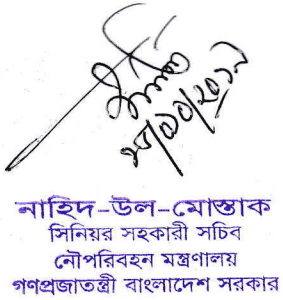 নাহিদ-উল-মোস্তাক
সিনিয়র সহকারী সচিব
নৌপরিবহন মন্ত্রণালয়
গণপ্রজাতন্ত্রী বাংলাদেশ সরকার